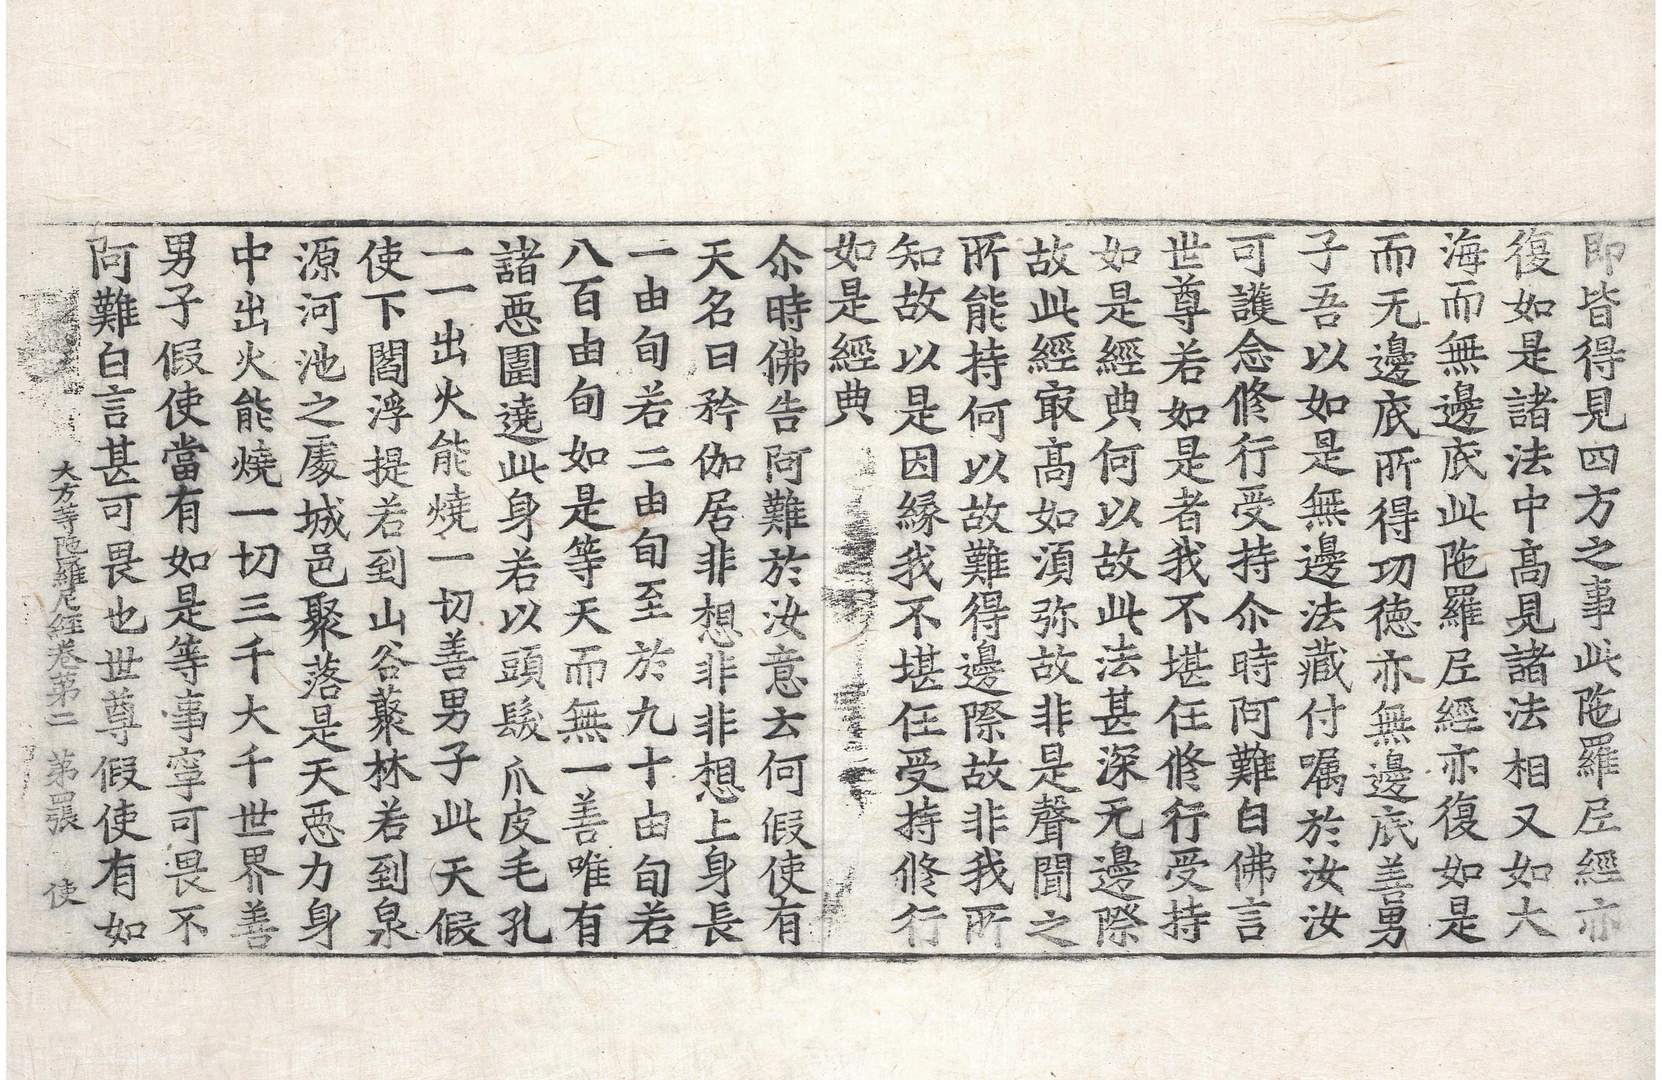 即皆得見四方之事此陁羅尼經亦
復如是諸法中髙見諸法相又如大
海而無邊底此陁羅尼經亦復如是
而无邊底所得功德亦無邊底善男
子吾以如是無邊法藏付嘱於汝汝
可護念修行受持尒時阿難白佛言
世尊若如是者我不堪任修行受持
如是經典何以故此法甚深无邊際
故此經㝡髙如湏弥故非是聲聞之
所能持何以故難得邊際故非我所
知故以是因緣我不堪任受持修行
如是經典
尒時佛告阿難於汝意云何假使有
天名曰矜伽居非想非非想上身長
一由旬若二由旬至於九十由旬若
八百由旬如是等天而無一善唯有
諸惡圍遶此身若以頭髮爪皮毛孔
一一出火能燒一切善男子此天假
使下閻浮提若到山谷藂林若到泉
源河池之處城邑聚落是天惡力身
中出火能燒一切三千大千世界善
男子假使當有如是等事寧可畏不
阿難白言甚可畏也世尊假使有如
大方等陁羅尼經卷第二 第四張 使